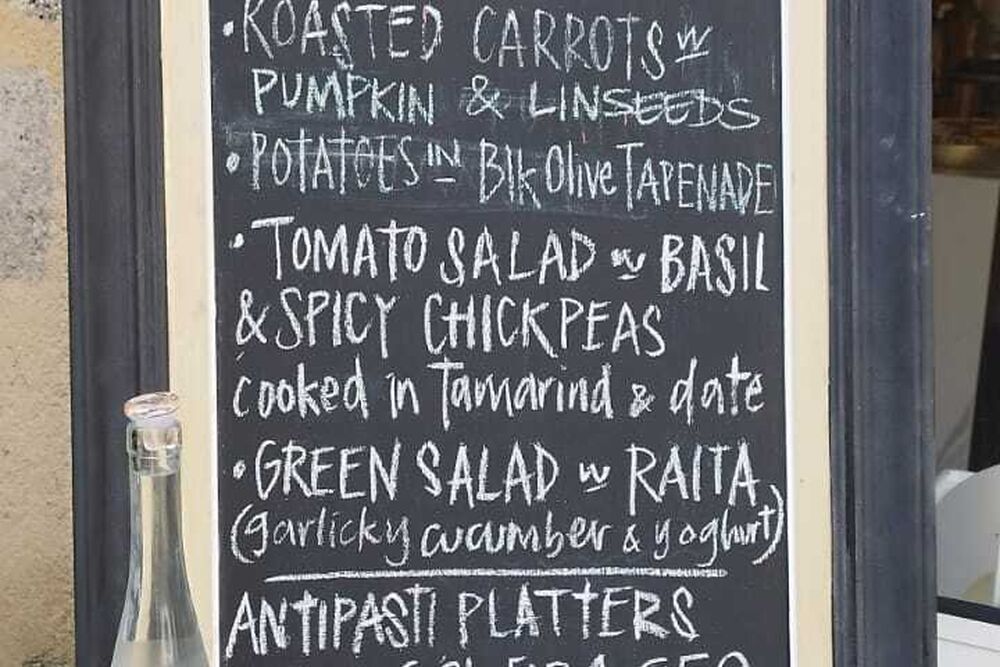 • ROASTED CARROTS w
PUMPKIN & LINSEEDS
• POTATOES IN Blk Olive TAPENADE
• TOMATO SALAD w BASIL
& SPICY CHICKPEAS
cooked in Tamarind & date
• GREEN SALAD w RAITA
(garlicky cucumber & yoghurt)
ANTIPASTI PLATTERS